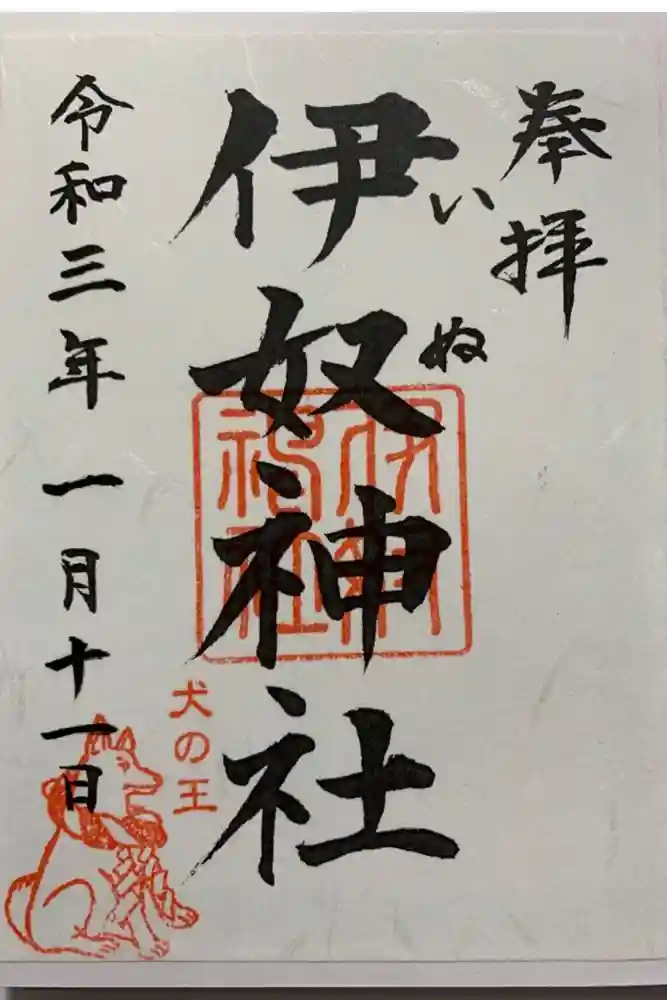 奉拝
伊奴神社
いぬ
令和三年一月十一日
犬の王
伊奴
神社